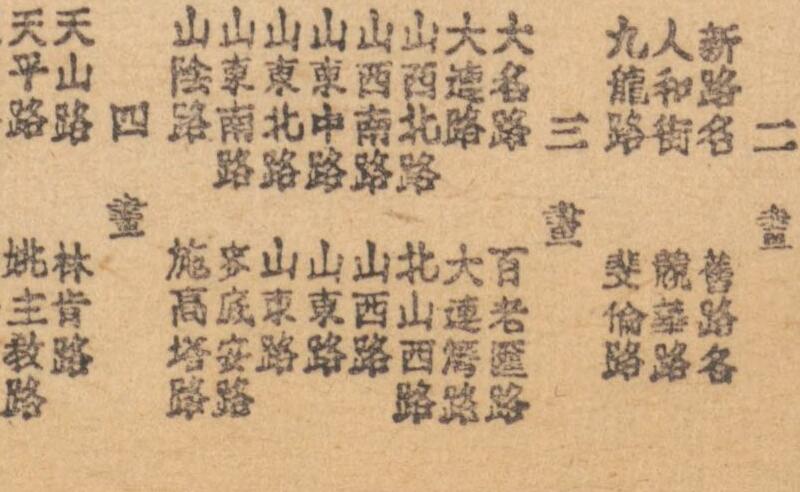 二畫
新路名 舊路名
人和街 競華路
九龍路 斐倫路
三畫
大名路 百老匯路
大連路 大連灣路
山西北路 北山西路
山西南路 山西路
山東中路 山東路
山東北路 山東路
山東南路 麥底安路
山陰路 施高塔路
四畫
天山路 林肯路
天平路 姚主教路